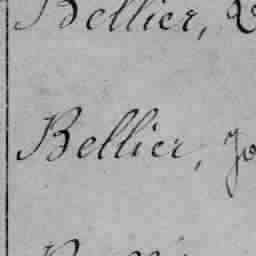 Bellier,
Bellier, Jo